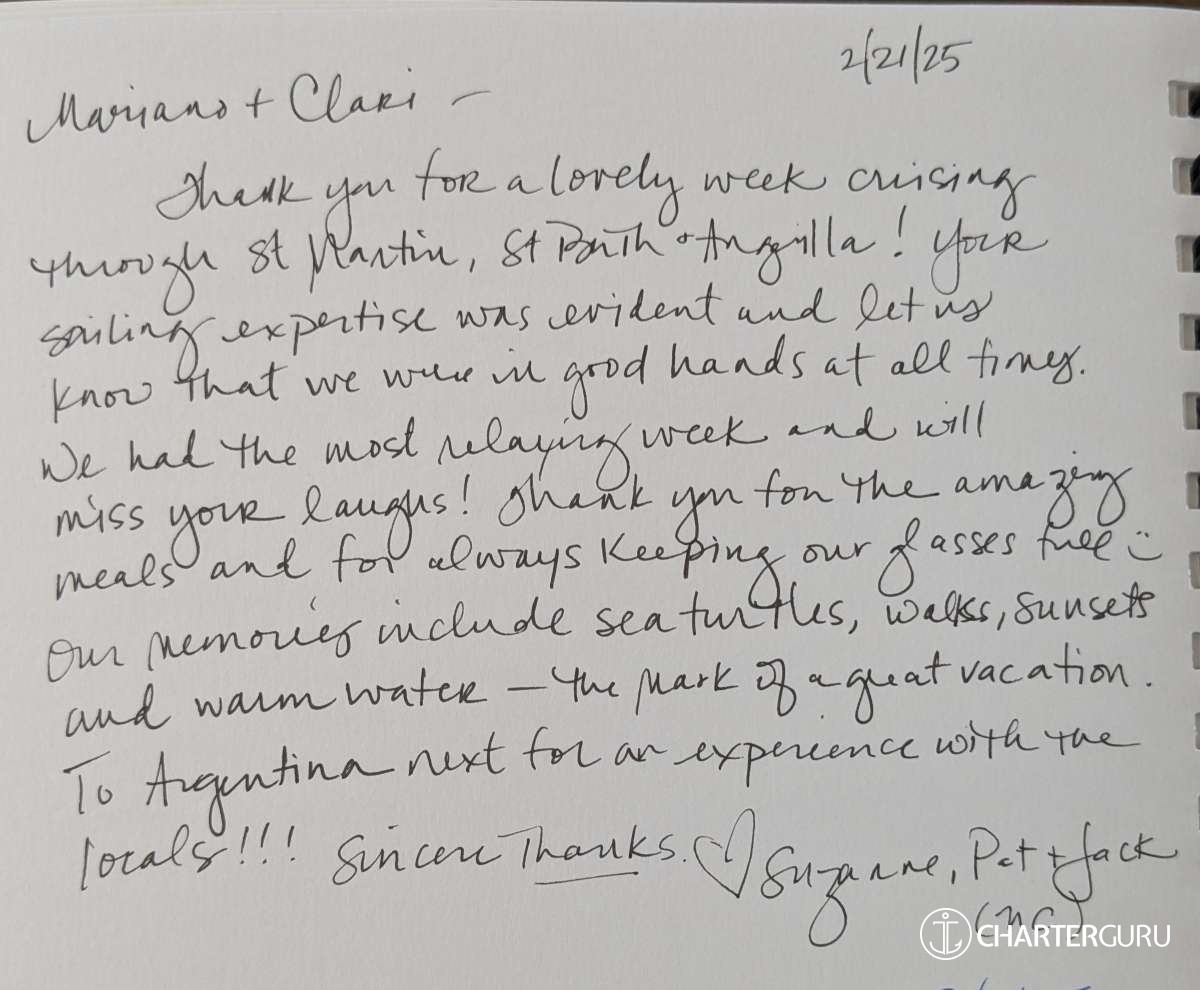 2/21/25
Mariano + Clari —
Thank you for a lovely week cruising
through St Martin, St Barth + Anguilla! Your
sailing expertise was evident and let us
know that we were in good hands at all times.
We had the most relaxing week and will
miss your laughs! Thank you for the amazing
meals and for always keeping our glasses full :)
Our memories include sea turtles, walks, sunsets
and warm water — the mark of a great vacation.
To Argentina next for an experience with the
locals!!! Sincere Thanks. ♡ Suzanne, Pat + Jack
(NC)
CHARTERGURU